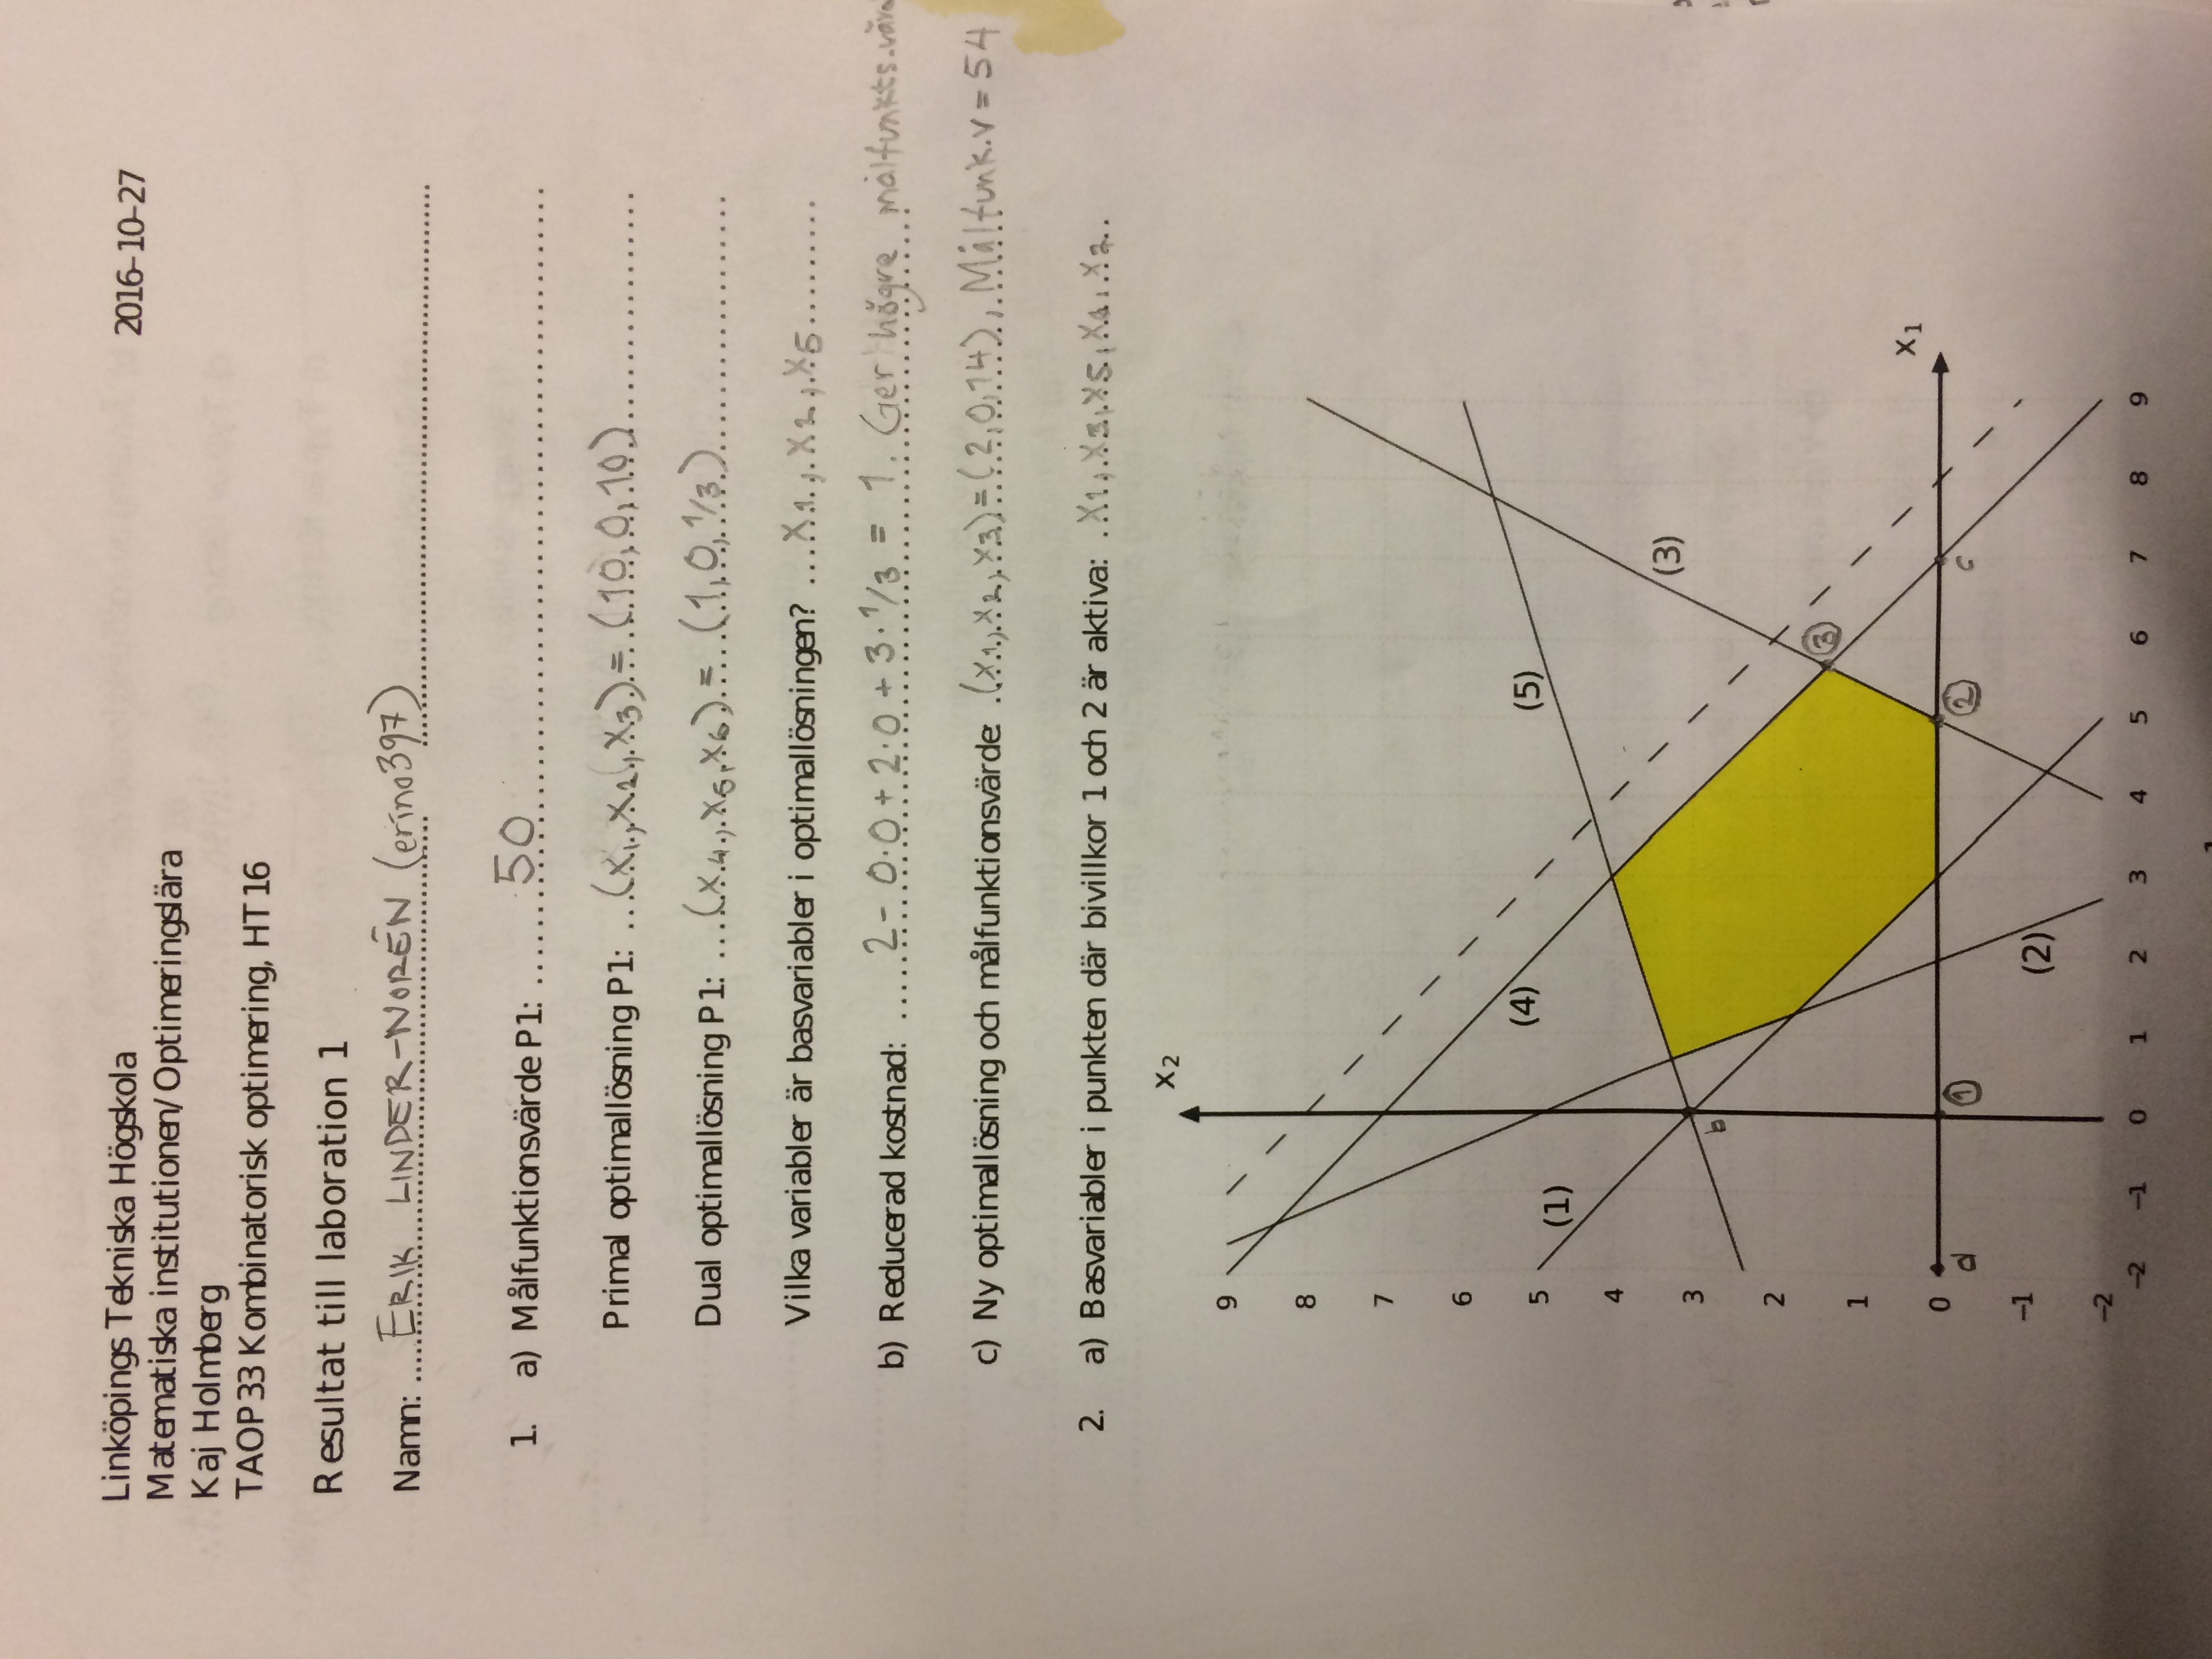 Linköpings Tekniska Högskola 2016-10-27
Matematiska institutionen/Optimeringslära
Kaj Holmberg
TAOP33 Kombinatorisk optimering, HT16
Resultat till laboration 1
Namn: ERIK LINDER-NORÉN (erino397)
1. a) Målfunktionsvärde P1: 50
Primal optimallösning P1: (x₁, x₂, x₃) = (10, 0, 10)
Dual optimallösning P1: (x₄, x₅, x₆) = (1, 0, 1/3)
Vilka variabler är basvariabler i optimallösningen? x₁, x₂, x₅
b) Reducerad kostnad: 2 - 0·0 + 2·0 + 3·1/3 = 1. Ger högre målfunkts.
c) Ny optimallösning och målfunktionsvärde: (x₁, x₂, x₃) = (2, 0, 14), Målfunk.v = 54
2. a) Basvariabler i punkten där bivillkor 1 och 2 är aktiva: x₁, x₃, x₅, x₄, x₂
x₂
9
8
7
6
(4) (5)
5
(1)
4
(3)
3
b
2
③
1
x₁
0
d ① ② c
-1
(2)
-2
-2 -1 0 1 2 3 4 5 6 7 8 9